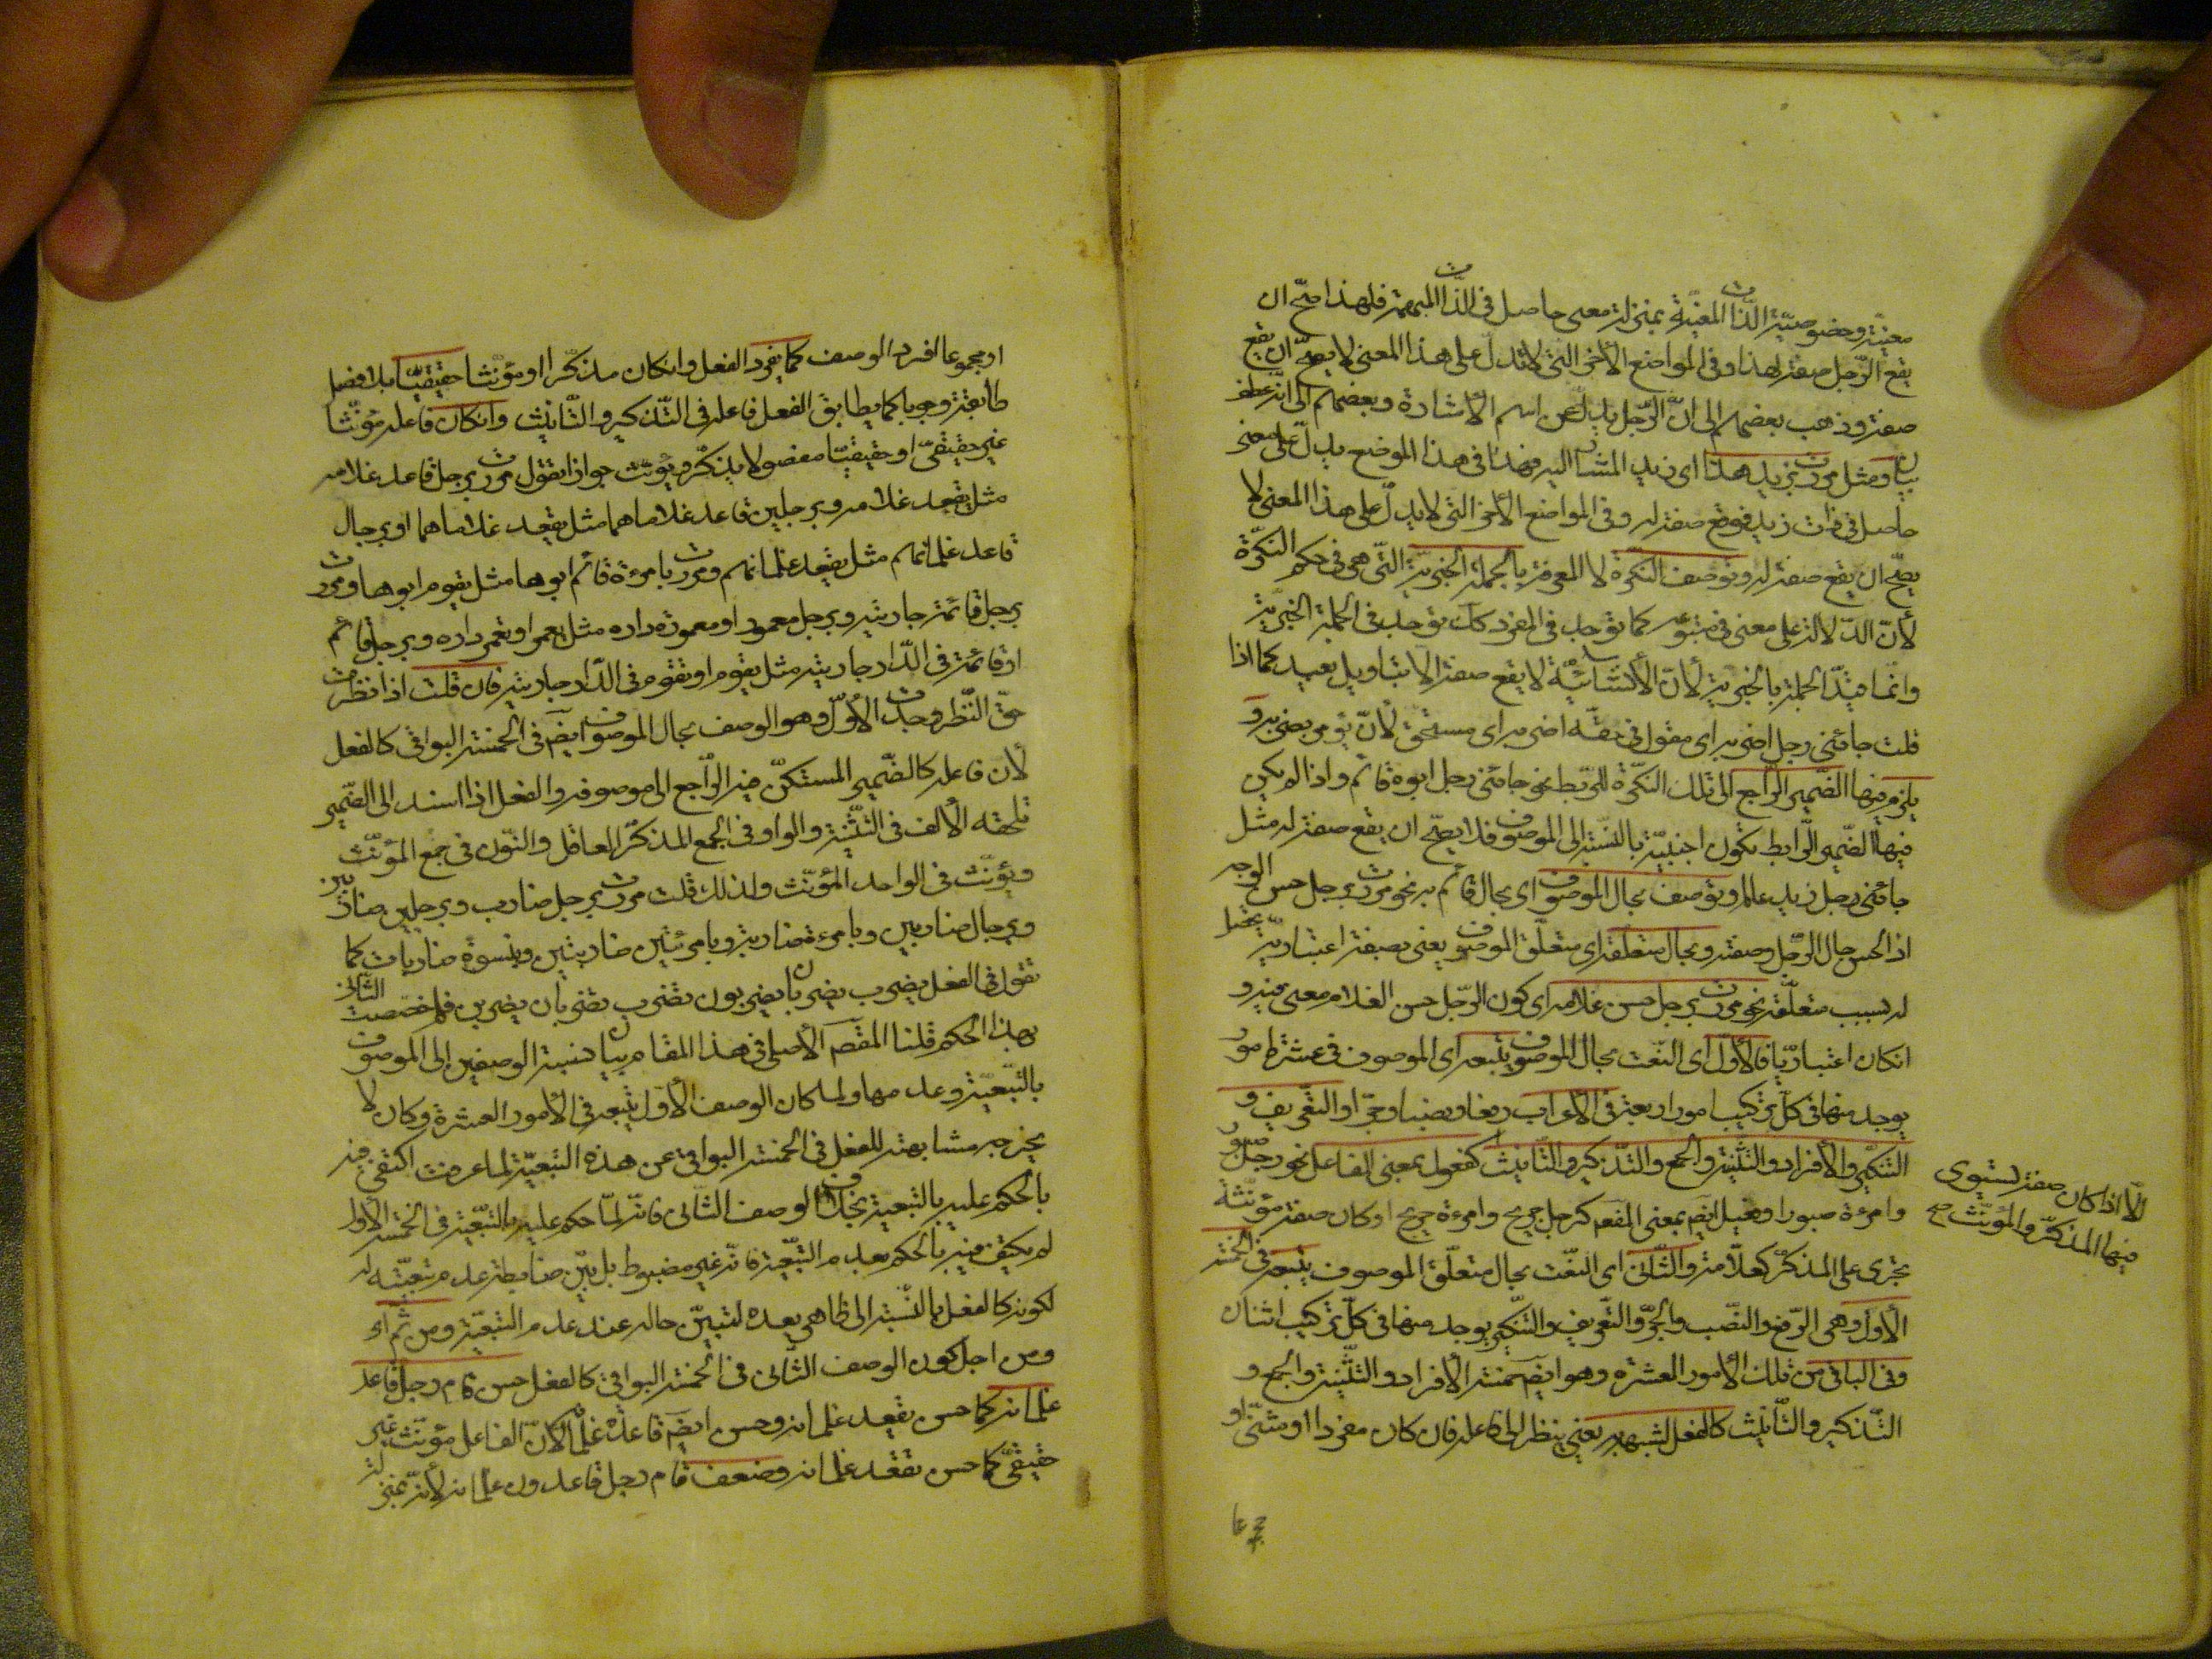 معينة وخصوصية الذات المعينة بمنزلة معنى حاصل فى الذات المبهمة فلهذا صحّ ان
يقع الرّجل صفة لهذا وفى المواضع الأخر التى لا تدلّ على هذا المعنى لا يصحّ ان يقع
صفة وذهب بعضهم الى انّ الرّجل بدل عن اسم الأشارة وبعضهم الى انّه عطف
بيان ومثل مررت بزيد هذا اى زيد المشار اليه فهذا فى هذا الموضع يدلّ على معنى
حاصل فى ذات زيد فوقع صفة له وفى المواضع الأخر التى لا يدلّ على هذا المعنى لا
يصحّ ان يقع صفة له وتوصف النكرة لا المعرفة بالجملة الخبرية التّى هى فى حكم النكرة
لأنّ الدّلالة على معنى فى متبوعه كما توجد فى المفرد كك توجد فى الجملة الخبريّة
وانّما قيّد الجملة بالخبرية لأنّ الأنشائيّة لا يقع صفة الا بتاويل بعيد كما اذا
قلت جاءنى رجل اضربه اى مقول فى حقّه اضربه اى مستحق لأنّ يؤمر بضربه و
يلزم فيها الضّمير الرّاجع الى تلك النكرة للرّبط نحو جاءنى رجل ابوه قائم واذا لم يكن
فيها الضّمير الرّابط تكون اجنبيّة بالنّسبة الى الموصوف فلا يصحّ ان يقع صفة له مثل
جاءنى رجل زيد عالم ويوصف بحال الموصوف اى بحال قائم به نحو مررت برجل حسن الوجه
اذ الحسن حال الرّجل وصفته وبحال متعلّقه اى متعلّق الموصوف يعنى بصفة اعتبارية تحصل
له بسبب متعلّقه نحو مررت برجل حسن غلامه اى كون الرّجل حسن الغلام معنى فيه و
انكان اعتباريّا فالأوّل اى النّعت بحال الموصوف يتبعه اى الموصوف فى عشرة امور
يوجد منها فى كلّ تركيب امور اربعة فى الأعراب رفعا ونصبا وجرّا والتّعريف و
التنكير والأفراد والتثنية والجمع والتذكير والتّأنيث كفعول بمعنى الفاعل نحو رجل صبور
الّا اذا كان صفة يستوى
فيها المذكّر والمؤنّث صح
وامرءة صبور او فعيل ايضم بمعنى المفعم كرجل جريح وامرءة جريح او كان صفة مؤنّثة
تجرى على المذكّر كعلّامة والثّانى اى النّعت بحال متعلّق الموصوف يتبعه فى الخمسة
الأول وهى الرّفع والنصّب والجرّ والتّعريف والتّنكير يوجد منها فى كلّ تركيب اثنان
وفى الباقى من تلك الأمور العشرة وهو ايضم خمسة الأفراد والتّثنية والجمع و
التّذكير والتّأنيث كالفعل لشبهه به يعنى ينظر الى فاعله فان كان مفردا او مثنّى او
او مجموعا افرد الوصف كما يفرد الفعل وانكان مذكّرا او مؤنّثا حقيقيّا بلا فصل
طابقته وجوبا كما يطابق الفعل فاعله فى التّذكير والتّأنيث وانكان فاعله مؤنّثا
غير حقيقىّ او حقيقيّا مفصولا يذكّر ويؤنّث جوازا تقول مررت برجل قاعد غلامه
مثل يقعد غلامه وبرجلين قاعد غلاماهما مثل يقعد غلاماهما او برجال
قاعد غلمانهم مثل يقعد غلمانهم ومررت بامرءة قائم ابوها مثل يقوم ابوها ومررت
برجل قائمة جاريته وبرجل معمور او معمورة داره مثل يعمر او تعمر داره وبرجل قائم
او قائمة فى الدّار جاريته مثل يقوم او تقوم فى الدّار جاريته فان قلت اذا نظرت
حقّ النّظر وجدت الأوّل وهو الوصف بحال الموصوف ايضم فى الخمسة البواقى كالفعل
لأن فاعله كالضّمير المستكنّ فيه الرّاجع الى موصوفه والفعل اذا اسند الى الضّمير
تلحقه الألف فى التثّنية والواو فى الجمع المذكّر العاقل والنّون فى جمع المؤنّث
ويؤنّث فى الواحد المؤنّث ولذلك قلت مررت برجل ضارب وبرجلين ضاربين
وبرجال ضاربين وبامرءة ضاربة وبامرئتين ضاربتين وبنسوة ضاربات كما
تقول فى الفعل يضرب يضربان يضربون تضرب تضربان يضربن فلم خصّصت الثّانى
بهذا الحكم قلنا المقصم الأصلى فى هذا المقام بيان نسبة الوصفين الى الموصوف
بالتّبعيّة وعدمها ولما كان الوصف الأوّل يتبعه فى الأمور العشرة وكان لا
يخرجه مشابهته للفعل فى الخمسة البواقى عن هذه التّبعيّة لما عرفت اكتفى فيه
بالحكم عليه بالتبعية بخلاف الوصف الثّانى فانّه لمّا حكم عليه بالتّبعيّة فى الخمسة الأول
لم يكتف فيه بالحكم بعدم التّبعيّة فانّه غير مضبوط بل بيّن ضابطة عدم تبعيّته له
لكونه كالفعل بالنّسبة الى ظاهر بعده ليتبيّن حاله عند عدم التبعيّة ومن ثمّ اى
ومن اجل كون الوصف الثّانى فى الخمسة البواقى كالفعل حسن قام رجل قاعد
غلمانه كما حسن يقعد غلمانه وحسن ايضم قاعدة غلمانه لأنّ الفاعل مؤنّث غير
حقيقىّ كما حسن تقعد غلمانه وضعف قام رجل قاعدون غلمانه لأنّه بمنزلة